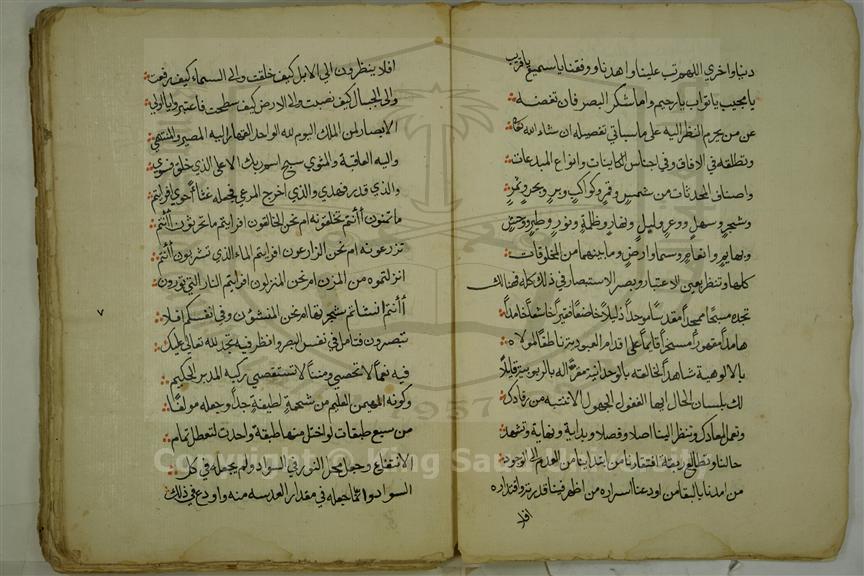 دنيا واخري اللهم تب علينا واهدنا ووفقنا يا سميع يا قريب
يا مجيب يا تواب يا رحيم واما شكر البصر فان تغضه
عن من يحرم النظر اليه على ما سياتي تفصيله ان شاء الله تعالى
وتطلقه في الافاق وفي اجناس الكاينات وانواع المبدعات
واصناف المحدثات من شمس وقمر وكواكب وبر وبحر
وشجر وسهل ووعر وليل ونهار وظلمة ونور وطير ووحش
وبهايم وانعام وسماء وارض وما بينهما من المخلوقات
كلها وتنظر بعين الاعتبار وبصر الاستبصار في ذلك كله فهنالك
تجده مسبحا ممجدا مقدسا موحدا ذليلا خاضعا فقيرا خاشعا خامدا
هامدا مقهورا مسخرا قايما على اقدام العبودية ناطقا لمولاه
بالالوهية شاهدا لخالقه بالوحدانية مقرا له بالربوبية قايلا
لك بلسان الحال ايها الغفول الجهول الا تنتبه من رقادك
وتنظر الينا اصلا وفصلا وبداية ونهاية وتشهد
حالنا وتطالع افتقارنا من ابتدانا من العدم الى الوجود
من امدنا بالبقا من اودعنا اسراره من اظهر فينا قدرته واقتداره
افلا
افلا ينظرون الى الابل كيف خلقت والى السماء كيف رفعت
والى الجبال كيف نصبت والى الارض كيف سطحت فاعتبروا يا اولي
الابصار لمن الملك اليوم لله الواحد القهار اليه المصير والمنتهى
واليه العاقبة والمثوي سبح اسم ربك الاعلى الذي خلق فسوي
والذي قدر فهدي والذي اخرج المرعى فجعله غثاء احوي افرايتم
ما تمنون أأنتم تخلقونه ام نحن الخالقون افرايتم ما تحرثون أأنتم
تزرعونه ام نحن الزارعون افرايتم الماء الذي تشربون أأنتم
انزلتموه من المزن ام نحن المنزلون افرايتم النار التي تورون
أأنتم انشاتم شجرتها ام نحن المنشؤن وفي انفسكم افلا
تبصرون فتامل في نفس البصر وانظر فيه تجد لله تعالى عليك
فيه نعما لا تحصي ومننا لا تستقصي ركبه المدبر الحكيم
وكونه المهيمن العليم من شحمة لطيفة جدا وجعله مولفا
من سبع طبقات لو اختل منها طبقة واحدة لتعطل تمام
الانتفاع وجعل محل النور في السواد ولم يجعله في كل
السواد وانما جعله في مقدار العدسه منه واودع في ذلك
٧
Copyright © King Saud University
1957